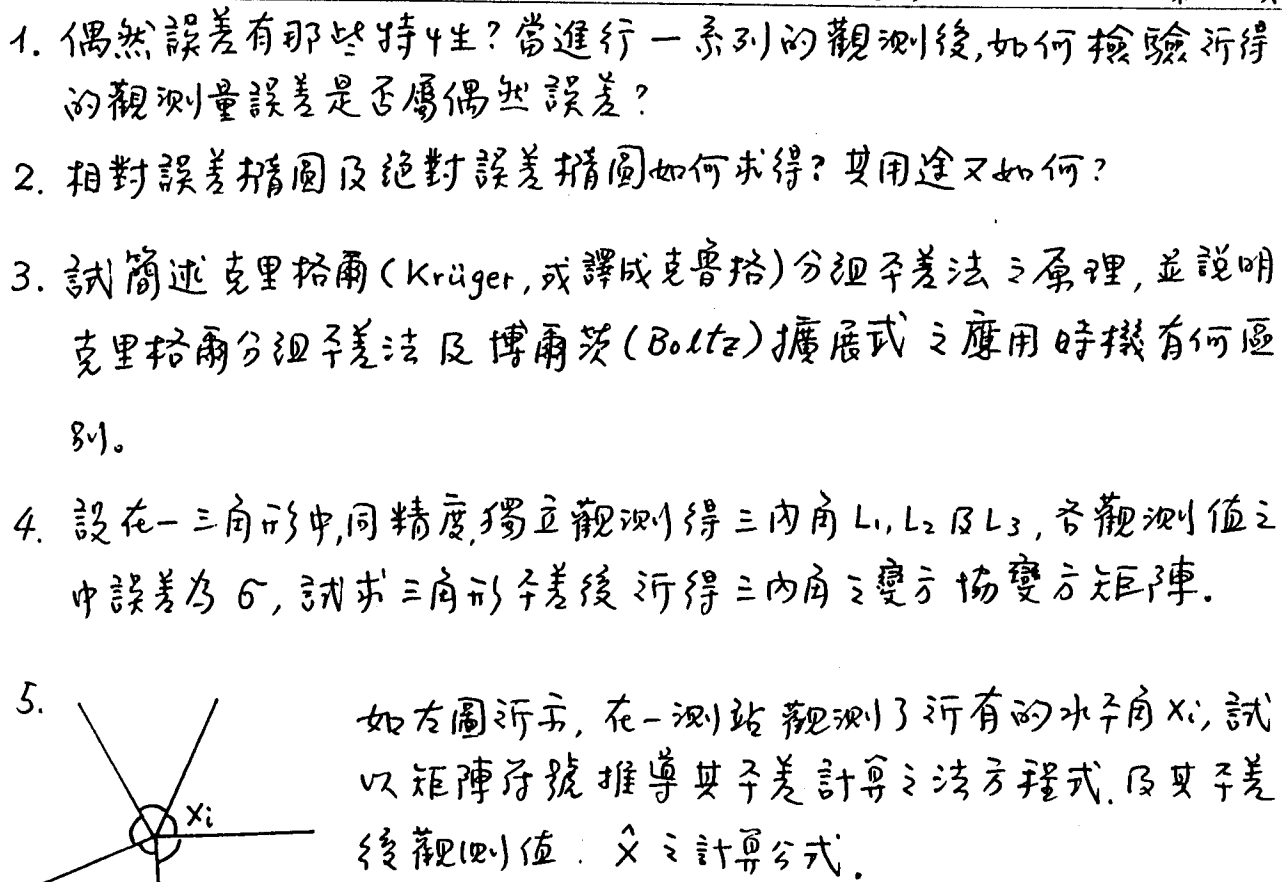 1. 偶然誤差有那些特性?當進行一系列的觀測後,如何檢驗所得
的觀測量誤差是否屬偶然誤差?
2. 相對誤差橢圓及絕對誤差橢圓如何求得?其用途又如何?
3. 試簡述克里格爾(Krüger,或譯成克魯格)分組平差法之原理,並說明
克里格爾分組平差法及博爾茨(Boltz)擴展式之應用時機有何區
別。
4. 設在一三角形中,同精度,獨立觀測得三內角L₁,L₂及L₃,各觀測值之
中誤差為σ,試求三角形平差後所得三內角之變方協變方矩陣.
5. 如左圖所示,在一測站觀測了所有的水平角Xi,試
以矩陣符號推導其平差計算之法方程式,及其平差
Xi
後觀測值:x̂之計算公式.